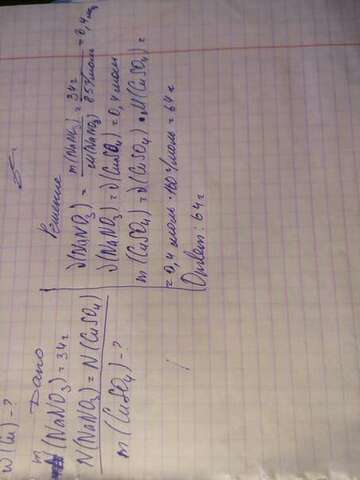 W(Cu) - ?
Дано
m(NaNO3) = 34г
N(NaNO3) = N(CuSO4)
m(CuSO4) - ?
Решение
ν(NaNO3) = m(NaNO3) / M(NaNO3) = 34г / 85г/моль = 0,4 моль
ν(NaNO3) = ν(CuSO4) = 0,4 моль
m(CuSO4) = ν(CuSO4) · M(CuSO4) =
= 0,4 моль · 160 г/моль = 64г
Ответ: 64г